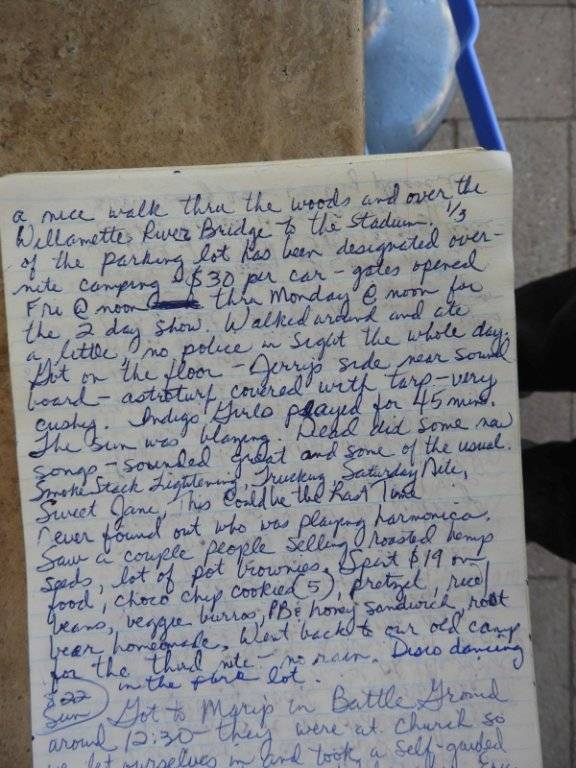 a nice walk thru the woods and over the
Willamette River Bridge to the Stadium. 1/3
of the parking lot has been designated over-
nite camping - $30 per car - gates opened
Fri @ noon thru Monday @ noon for
the 2 day show. Walked around and ate
a little, no police in sight the whole day.
Got on the floor - Jerry's side near sound
board - astroturf covered with tarp - very
cushy. Indigo Girls played for 45 mins.
The sun was blazing. Dead did some new
songs - sounded great and some of the usual.
Smoke Stack Lightening, Trucking, Saturday Nite,
Sweet Jane, This Could be the Last Time
never found out who was playing harmonica.
Saw a couple people selling roasted hemp
seeds, lot of pot brownies. Spent $19 on
food, choco chip cookies (5), pretzel, rice/
beans, veggie burros, PB & honey sandwich, root
bear homemade. Went back to our old camp
for the third nite - no rain. Disco dancing
in the park lot.
22
Sun Got to Marip in Battle Ground
around 12:30 - they were at church so
we let ourselves in and took a self-guided